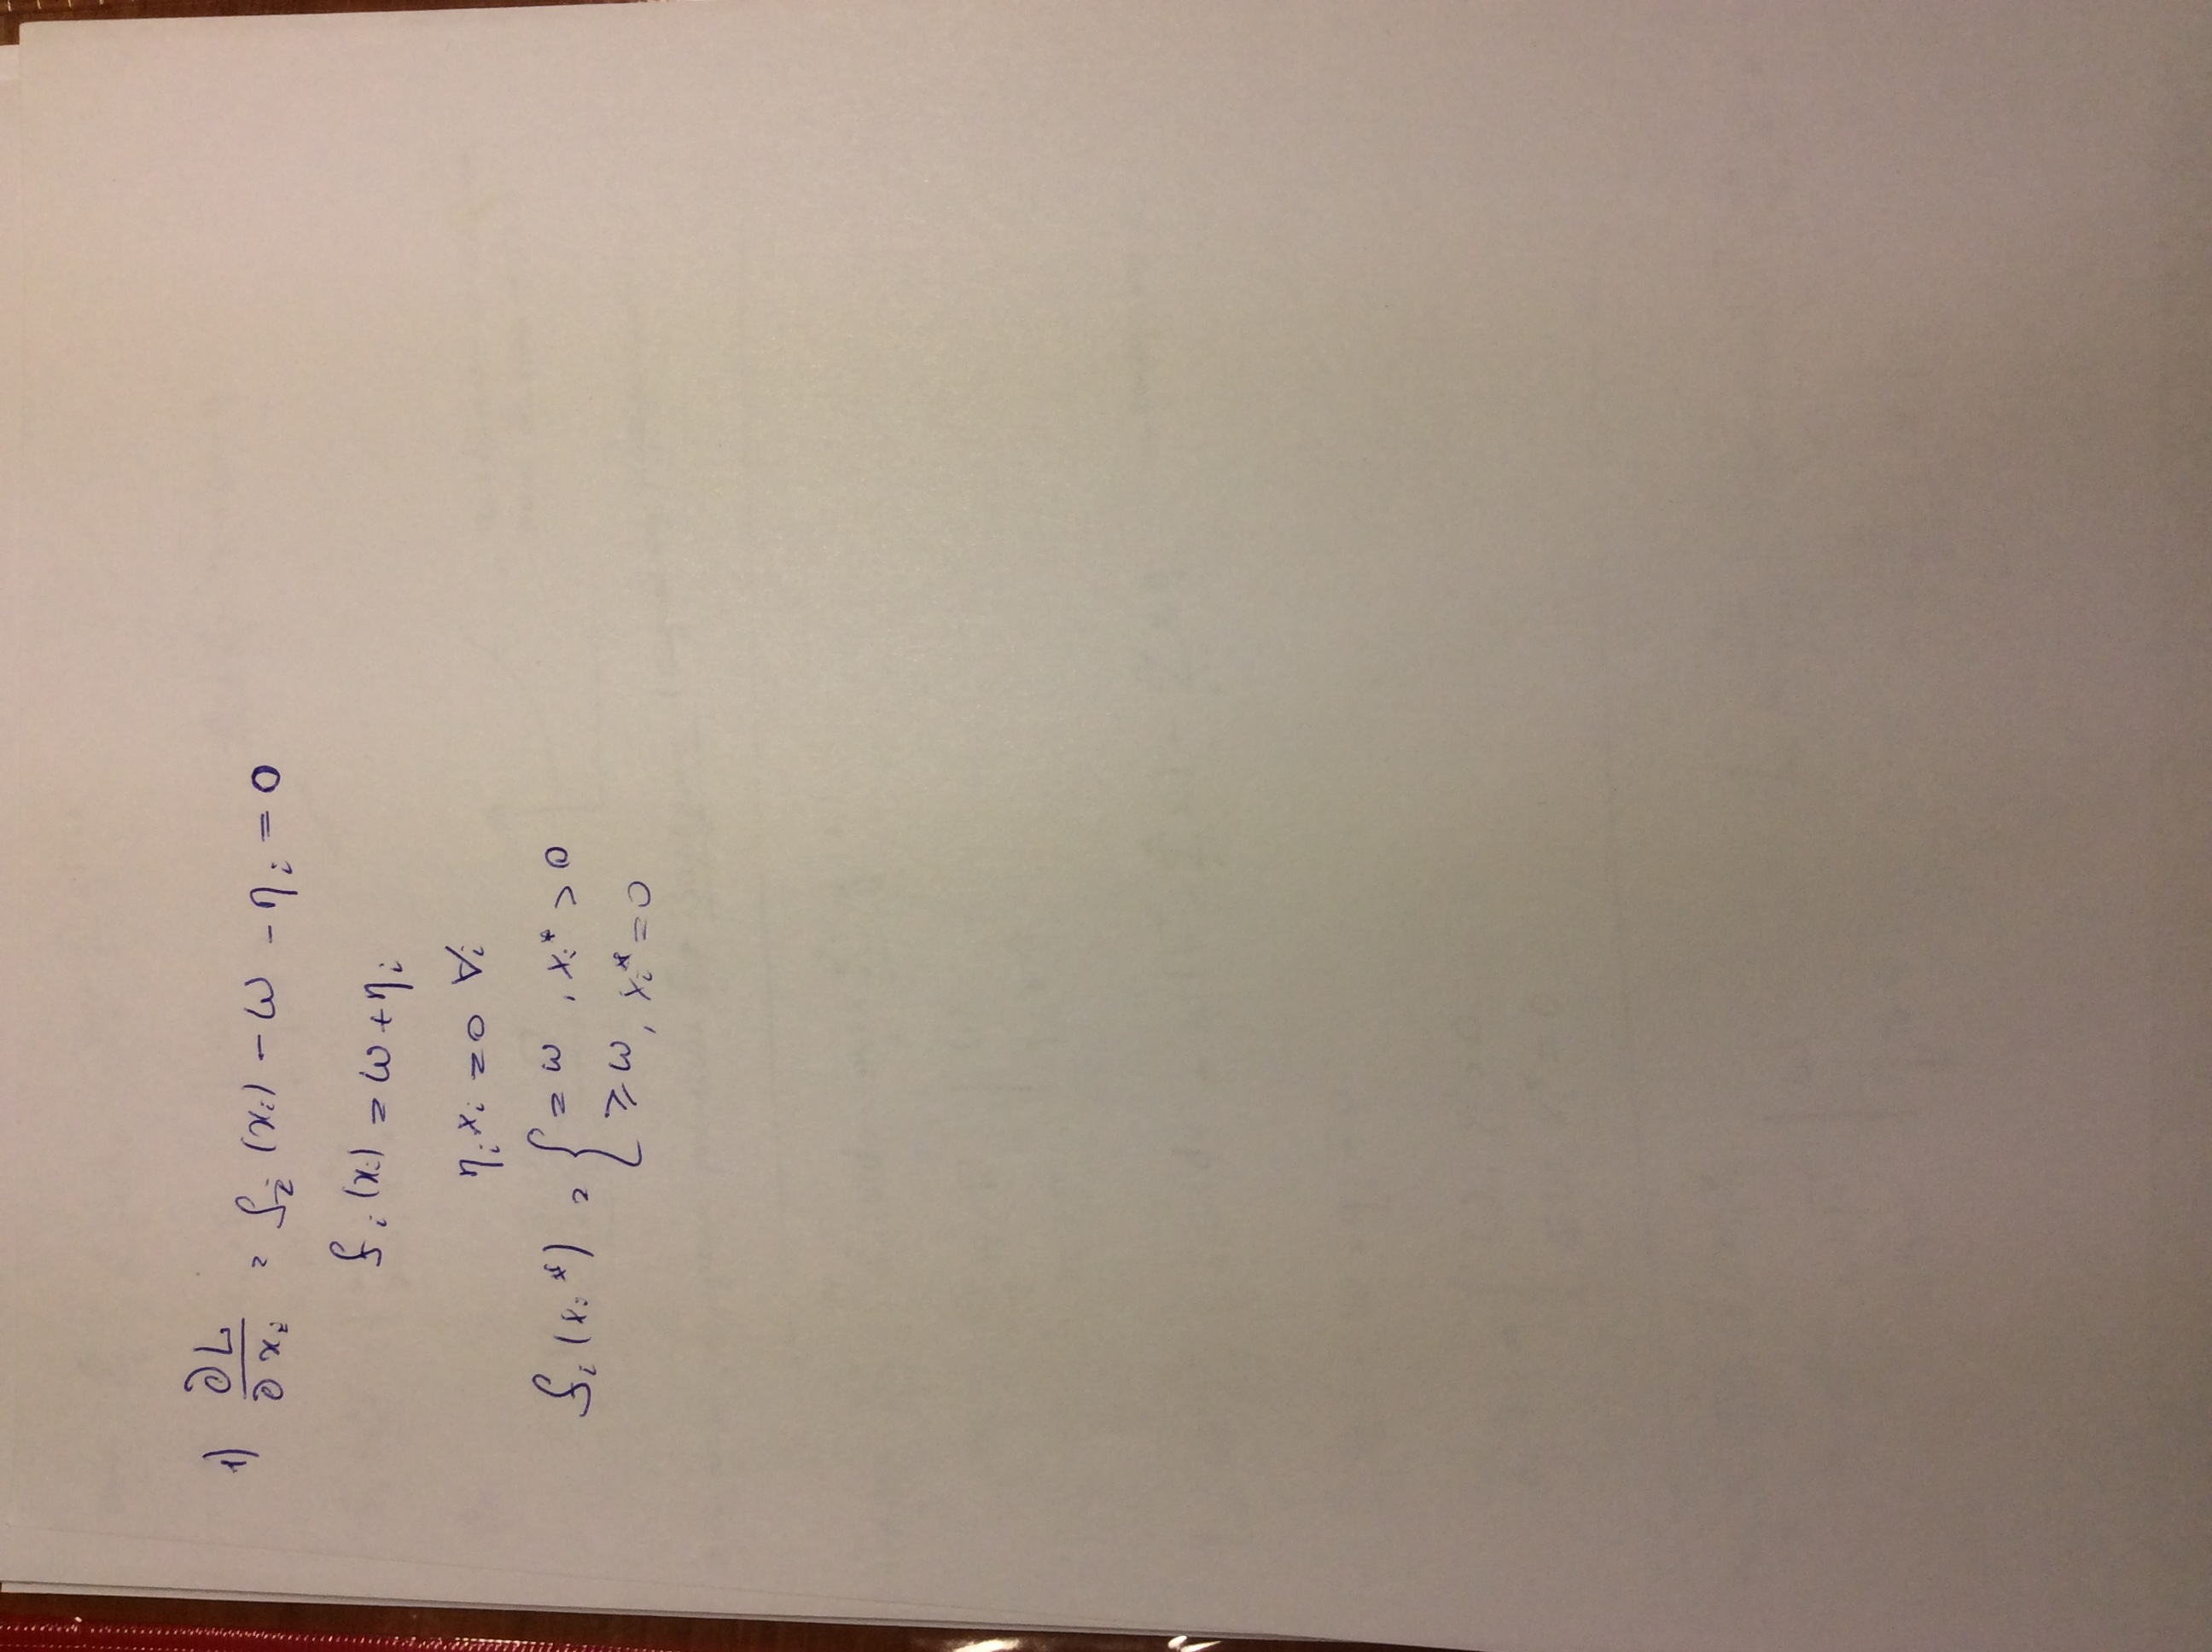 1) ∂L/∂xᵢ = fᵢ (xᵢ) − ω − ηᵢ = 0
fᵢ (xᵢ) = ω + ηᵢ
ηᵢ xᵢ = 0 ∀i
fᵢ (xᵢ*) = { = ω , xᵢ* > 0
≥ ω, xᵢ* = 0